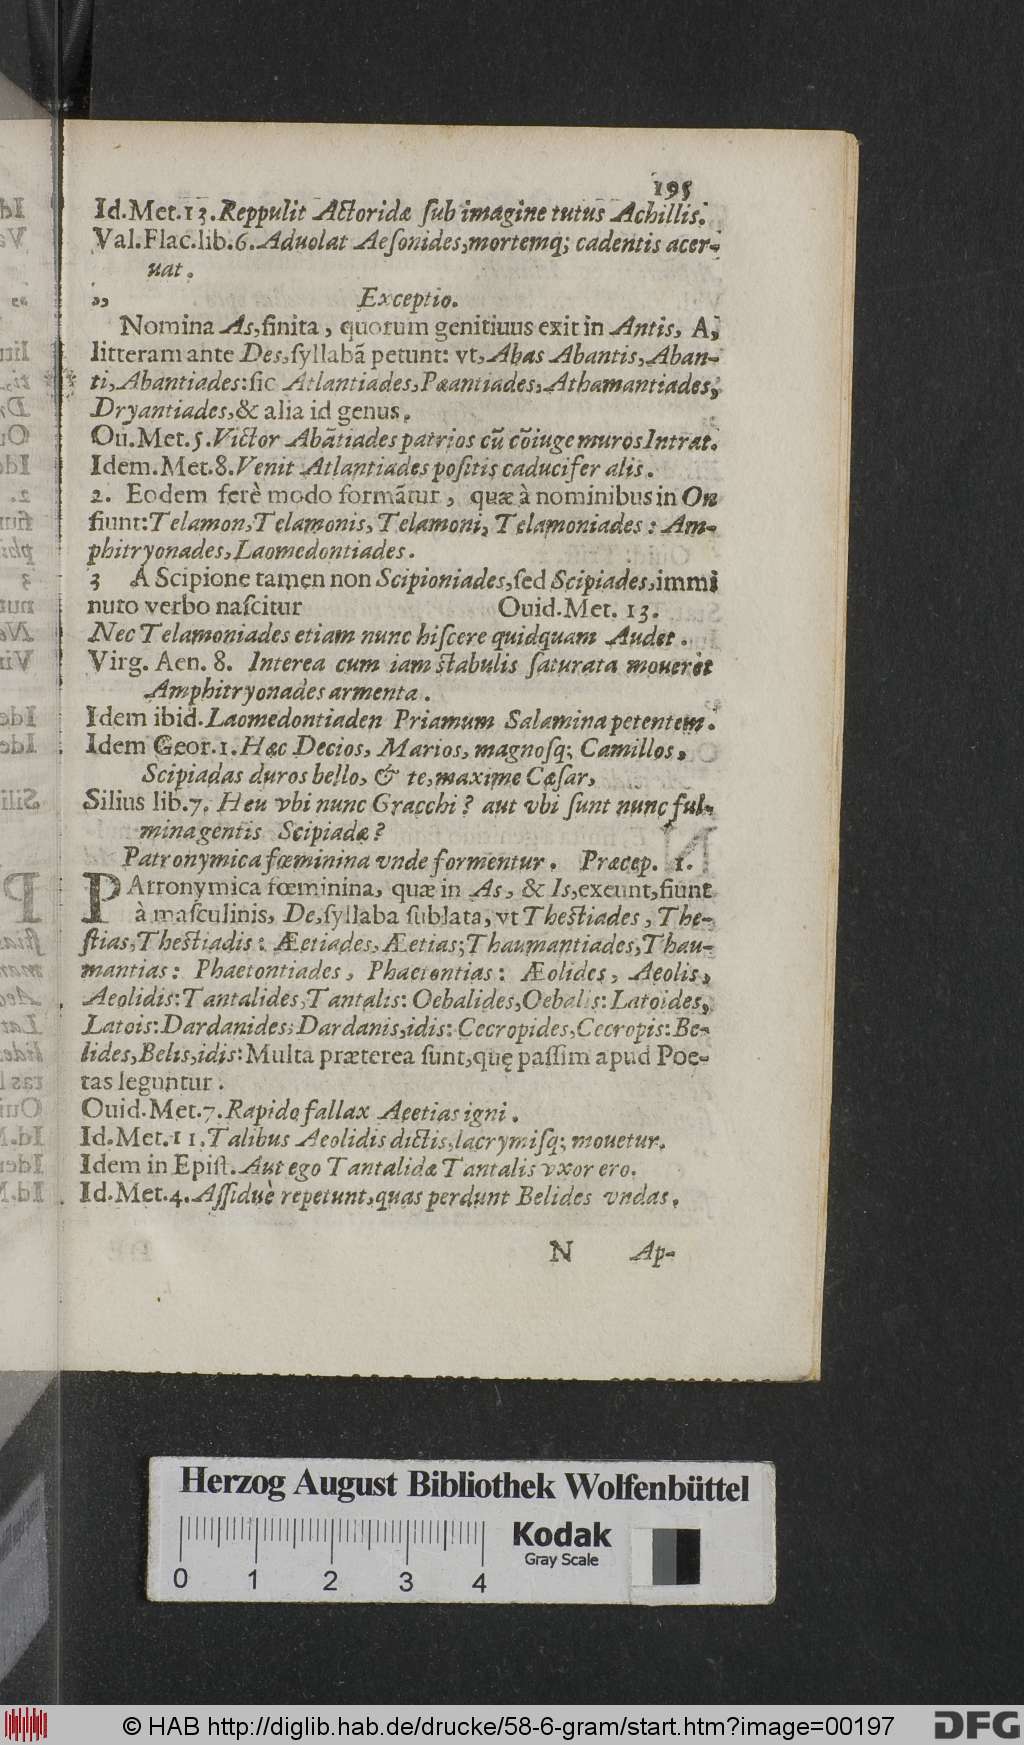 195
Id.Met.13.Reppulit Actoridæ ſub imagine tutus Achillis.
Val.Flac.lib.6.Aduolat Aeſonides,mortemq; cadentis acer-
uat.
,, Exceptio.
Nomina As,finita, quorum genitiuus exit in Antis, A,
litteram ante Des,ſyllabã petunt: vt,Abas Abantis,Aban-
ti,Abantiades:ſic Atlantiades,Pæantiades,Athamantiades,
Dryantiades,& alia id genus.
Ou.Met.5.Victor Abãtiades patrios cũ cõiuge muros Intrat.
Idem.Met.8.Venit Atlantiades poſitis caducifer alis.
2. Eodem ferè modo formãtur, quæ à nominibus in On
fiunt:Telamon,Telamonis,Telamoni,Telamoniades: Am-
phitryonades,Laomedontiades.
3 A Scipione tamen non Scipioniades,ſed Scipiades,immi
nuto verbo naſcitur Ouid.Met. 13.
Nec Telamoniades etiam nunc hiſcere quidquam Audet.
Virg. Aen. 8. Interea cum iam ſtabulis ſaturata moueret
Amphitryonades armenta.
Idem ibid.Laomedontiaden Priamum Salamina petentem.
Idem Geor.1.Hæc Decios, Marios, magnoſq; Camillos,
Scipiadas duros bello, & te,maxime Cæſar,
Silius lib.7. Heu vbi nunc Gracchi? aut vbi ſunt nunc ful-
mina gentis Scipiadæ?
Patronymica fœminina vnde formentur. Præcep. 1.
PAtronymica fœminina, quæ in As, & Is,exeunt,fiunt
à maſculinis, De,ſyllaba ſublata, vt Theſtiades, The-
ſtias,Theſtiadis: Æetiades,Æetias;Thaumantiades,Thau-
mantias: Phaetontiades, Phaetontias: Æolides, Aeolis,
Aeolidis:Tantalides,Tantalis:Oebalides,Oebalis:Latoides,
Latois:Dardanides;Dardanis,idis:Cecropides,Cecropis:Be-
lides,Belis,idis:Multa præterea ſunt,quę paſſim apud Poe-
tas leguntur.
Ouid.Met.7.Rapido fallax Aeetias igni.
Id.Met.11.Talibus Aeolidis dictis,lacrymiſq; mouetur.
Idem in Epiſt.Aut ego Tantalidæ Tantalis vxor ero.
Id.Met.4.Aſſiduè repetunt,quas perdunt Belides vndas.
N Ap-
Herzog August Bibliothek Wolfenbüttel
Kodak
Gray Scale
0 1 2 3 4
© HAB http://diglib.hab.de/drucke/58-6-gram/start.htm?image=00197
DFG